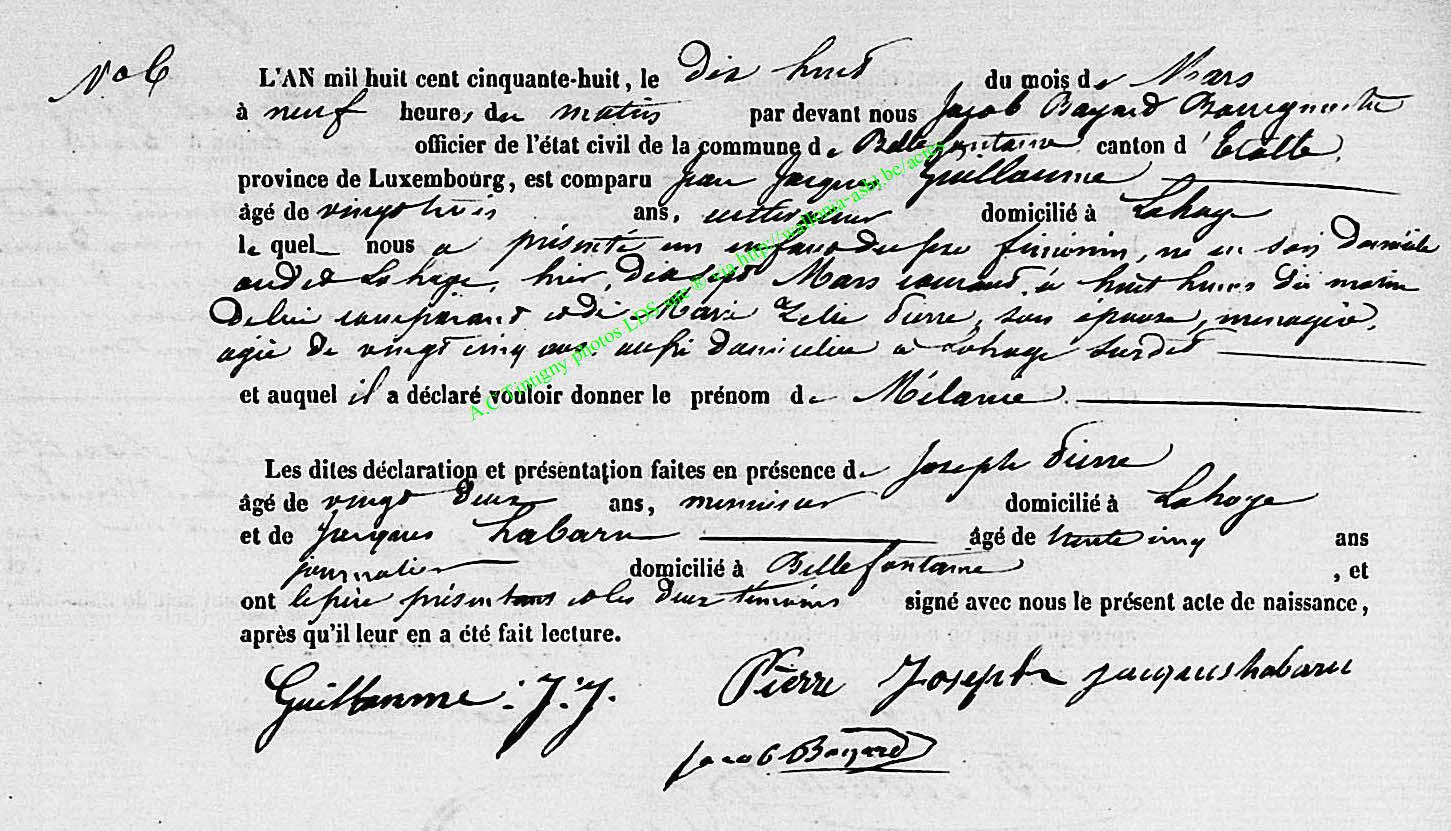 No 6
L'AN mil huit cent cinquante-huit, le dix huit du mois de Mars
à neuf heures du matin par devant nous Jacob Bayard Bourgmestre
officier de l'état civil de la commune de Bellefontaine canton d'Etalle
province de Luxembourg, est comparu Jean Jacques Guillaume
âgé de vingt trois ans, cultivateur domicilié à Lahage
lequel nous a présenté un enfant du sexe féminin, né en son domicile
audit Lahage, hier, dix sept Mars courant, à huit heures du matin
De lui comparant et de Marie Zelie Pierre, son épouse, menagère,
agée de vingt cinq ans aussi domiciliée à Lahage susdit
et auquel il a déclaré vouloir donner le prénom de Mélanie.
Les dites déclaration et présentation faites en présence de Joseph Pierre
âgé de vingt deux ans, menuisier domicilié à Lahage
et de Jacques Habaru âgé de trente cinq ans
journalier domicilié à Bellefontaine, et
ont le père présentant et les deux témoins signé avec nous le présent acte de naissance,
après qu'il leur en a été fait lecture.
Guillaume. J. J. Pierre Joseph Jacques habaru
Jacob Bayard
A.C Tintigny photos LDS, via http://wallonia-asbl.be/actes